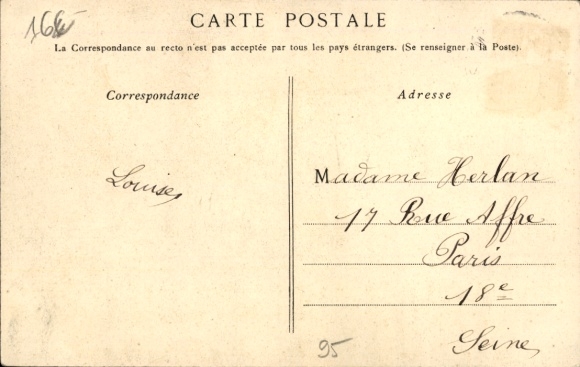 CARTE POSTALE
La Correspondance au recto n'est pas acceptée par tous les pays étrangers. (Se renseigner à la Poste).
Correspondance
Adresse
Louise
Madame Herlan
17 Rue Affre
Paris
18e
Seine
95